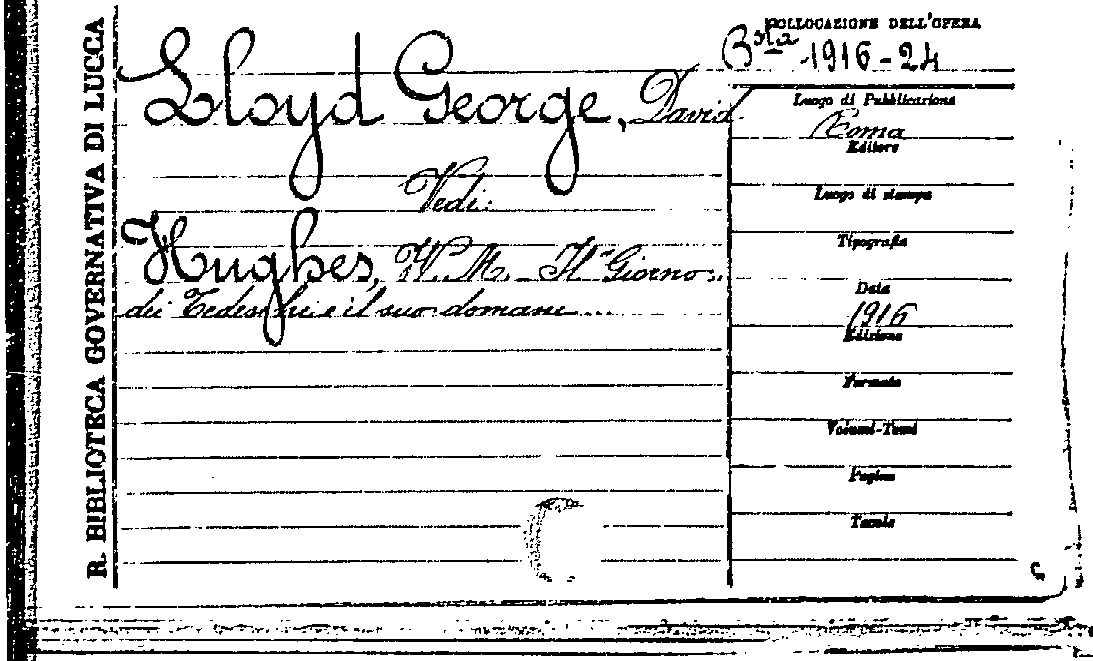 R. BIBLIOTECA GOVERNATIVA DI LUCCA
Lloyd George, David
Vedi:
Hughes, W. M. - Il Giorno
dei Tedeschi e il suo domani...
COLLOCAZIONE DELL'OPERA
Bsta 1916-24
Luogo di Pubblicazione
Roma
Editore
Luogo di stampa
Tipografia
Data
1916
Edizione
Formato
Volumi-Tomi
Pagine
Tavole